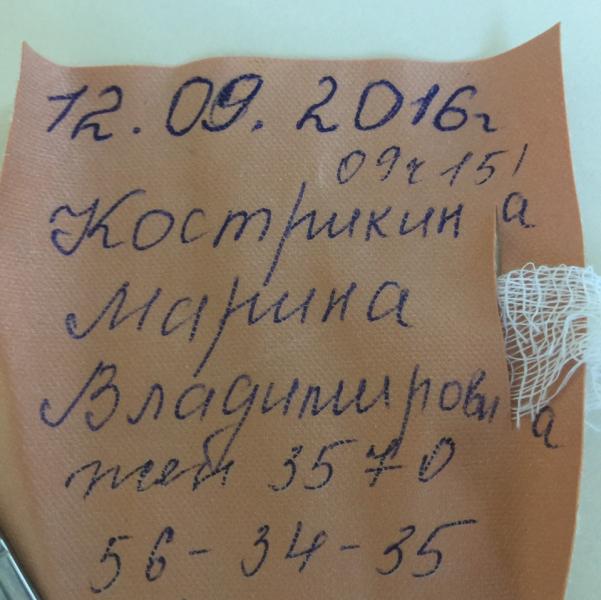 12.09.2016г
09ч15'
Кострикина
Марина
Владимировна
жен 3570
56-34-35